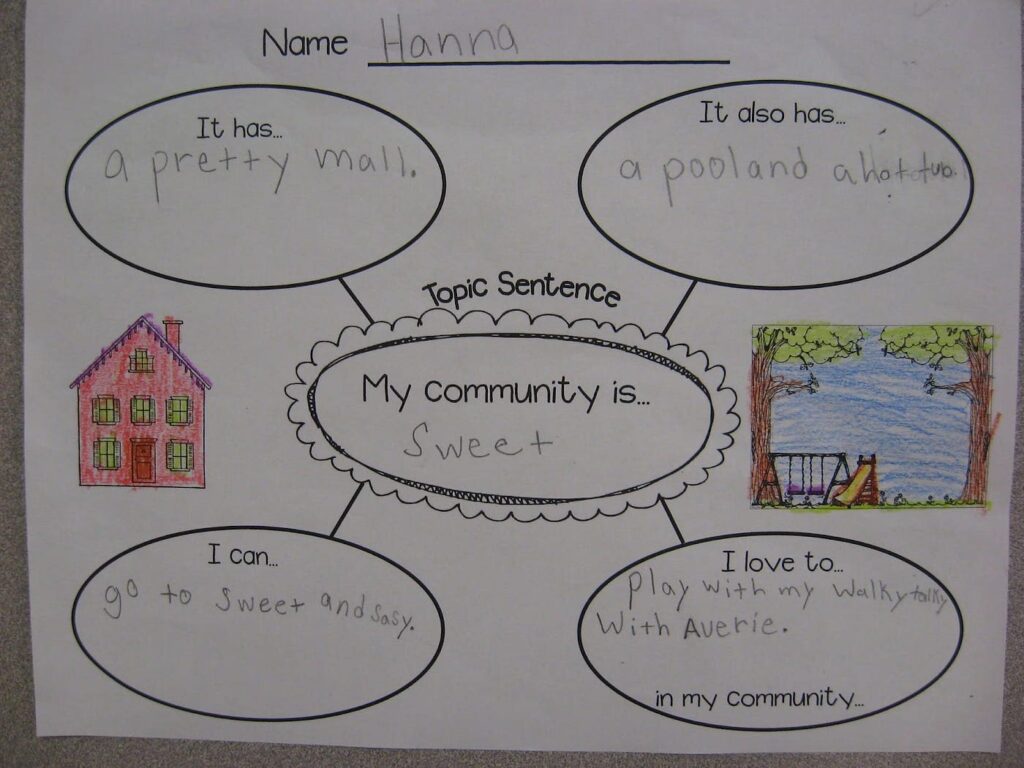 Name Hanna
It has...
a pretty mall.
It also has...
a pool and a hot tub.
Topic Sentence
My community is...
sweet
I can...
go to sweet and sasy.
I love to...
play with my walky talky
with Averie.
in my community...